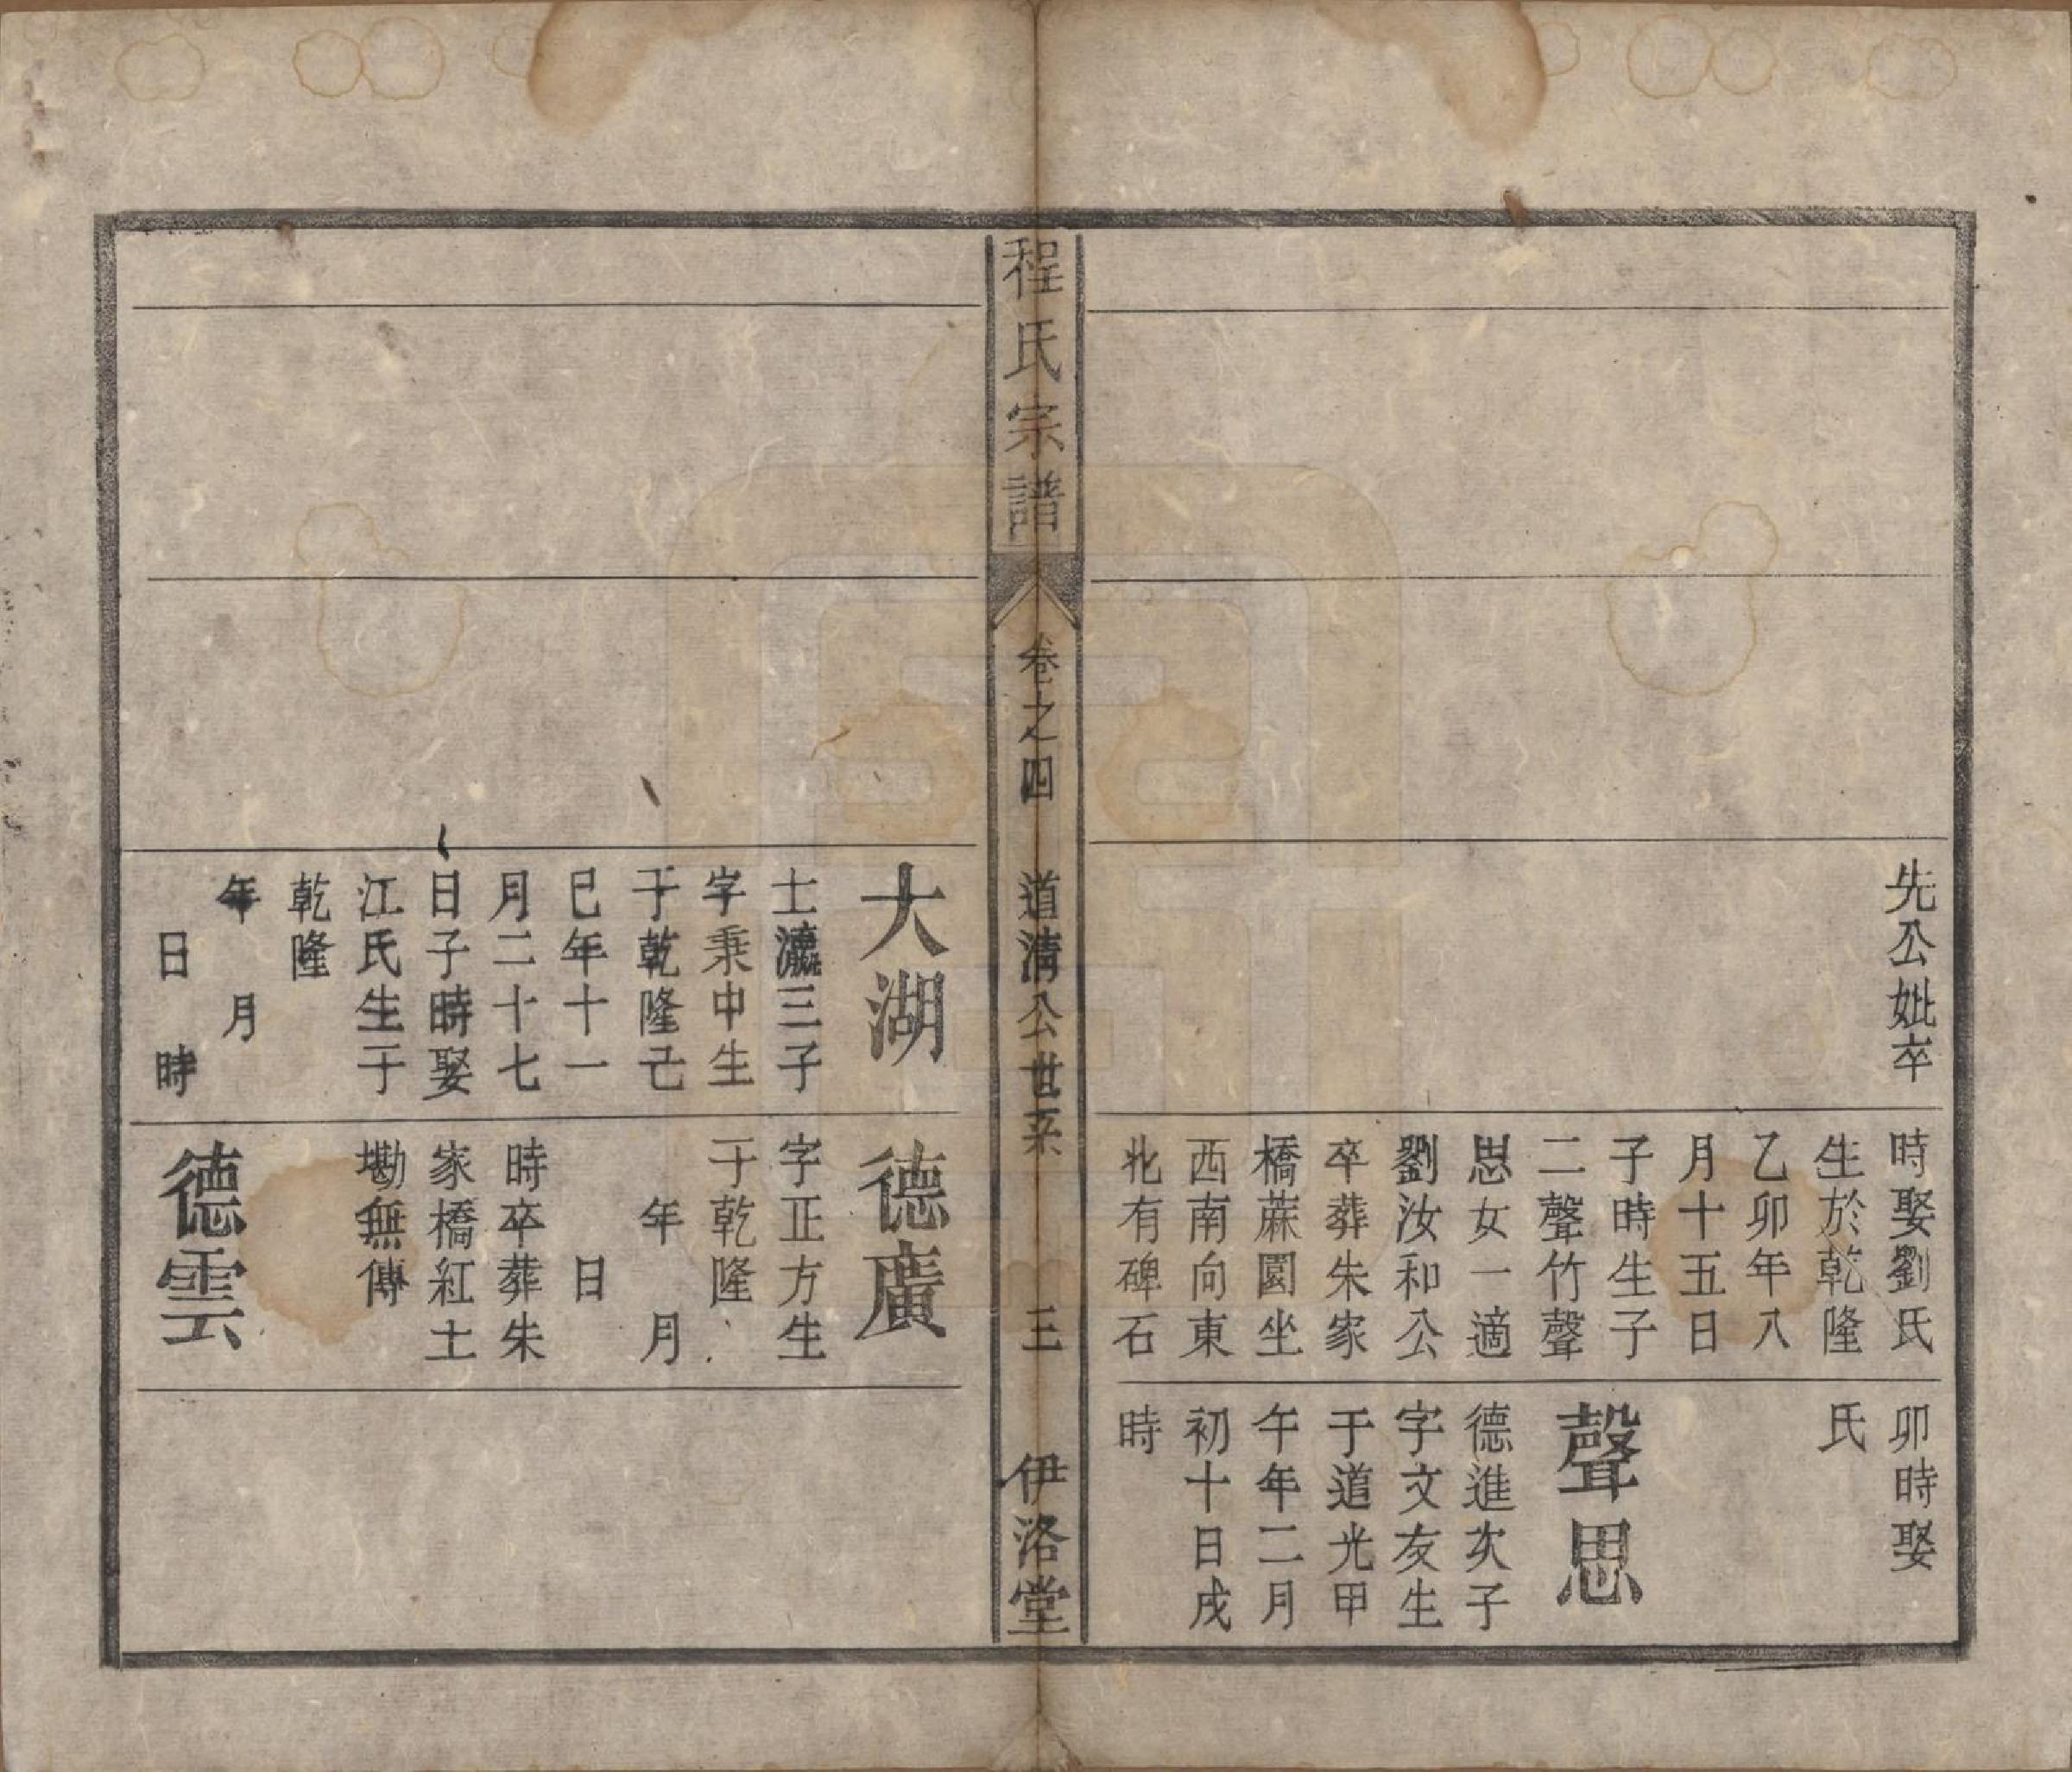 先公妣卒
時娶劉氏
生於乾隆
乙卯年八
月十五日
子時生子
二聲竹聲
思女一適
劉汝和公
卒葬朱家
橋蔴園坐
西南向東
北有碑石
卯時娶
氏
聲思
德進次子
字文友生
于道光甲
午年二月
初十日戌
時
程氏宗譜
卷之四
道清公世系
三
伊洛堂
大湖
士瀛三子
字秉中生
于乾隆己
巳年十一
月二十七
日子時娶
江氏生于
乾隆
年 月
日 時
德廣
字正方生
于乾隆
年 月
日
時卒葬朱
家橋紅土
墈無傳
德雲